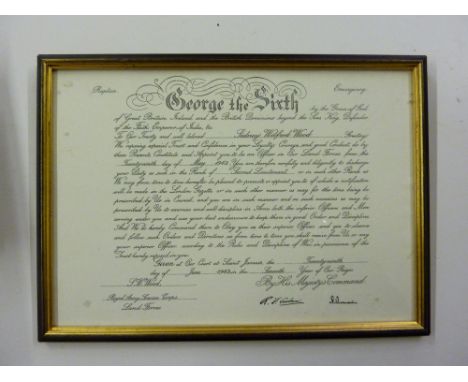 Emergency.
George the Sixth
by the Grace of God
of Great Britain, Ireland and the British Dominions beyond the Seas, King, Defender
of the Faith, Emperor of India, &c.
To Our Trusty and well beloved Sidney Wilfred Wood, Greeting:
We reposing especial Trust and Confidence in your Loyalty, Courage, and good Conduct, do by
these Presents Constitute and Appoint you to be an Officer in Our Land Forces from the
day of May 1942. You are therefore carefully and diligently to discharge
your Duty as such in the Rank of Second Lieutenant or in such other Rank as
We may from time to time hereafter be pleased to promote or appoint you to, of which a notification
will be made in the London Gazette, or in such other manner as may for the time being be
prescribed by Us in Council, and you are in such manner and on such occasions as may be
prescribed by Us to exercise and well discipline in Arms both the inferior Officers and Men
serving under you and use your best endeavours to keep them in good Order and Discipline.
And We do hereby Command them to Obey you as their superior Officer and you to observe
and follow such Orders and Directions as from time to time you shall receive from Us, or any
your superior Officer, according to the Rules and Discipline of War, in pursuance of the
Trust hereby reposed in you.
Given at Our Court, at Saint James's, the
day of June 1942 in the Year of Our Reign
By His Majesty's Command
S.W. Wood,
Land Forces